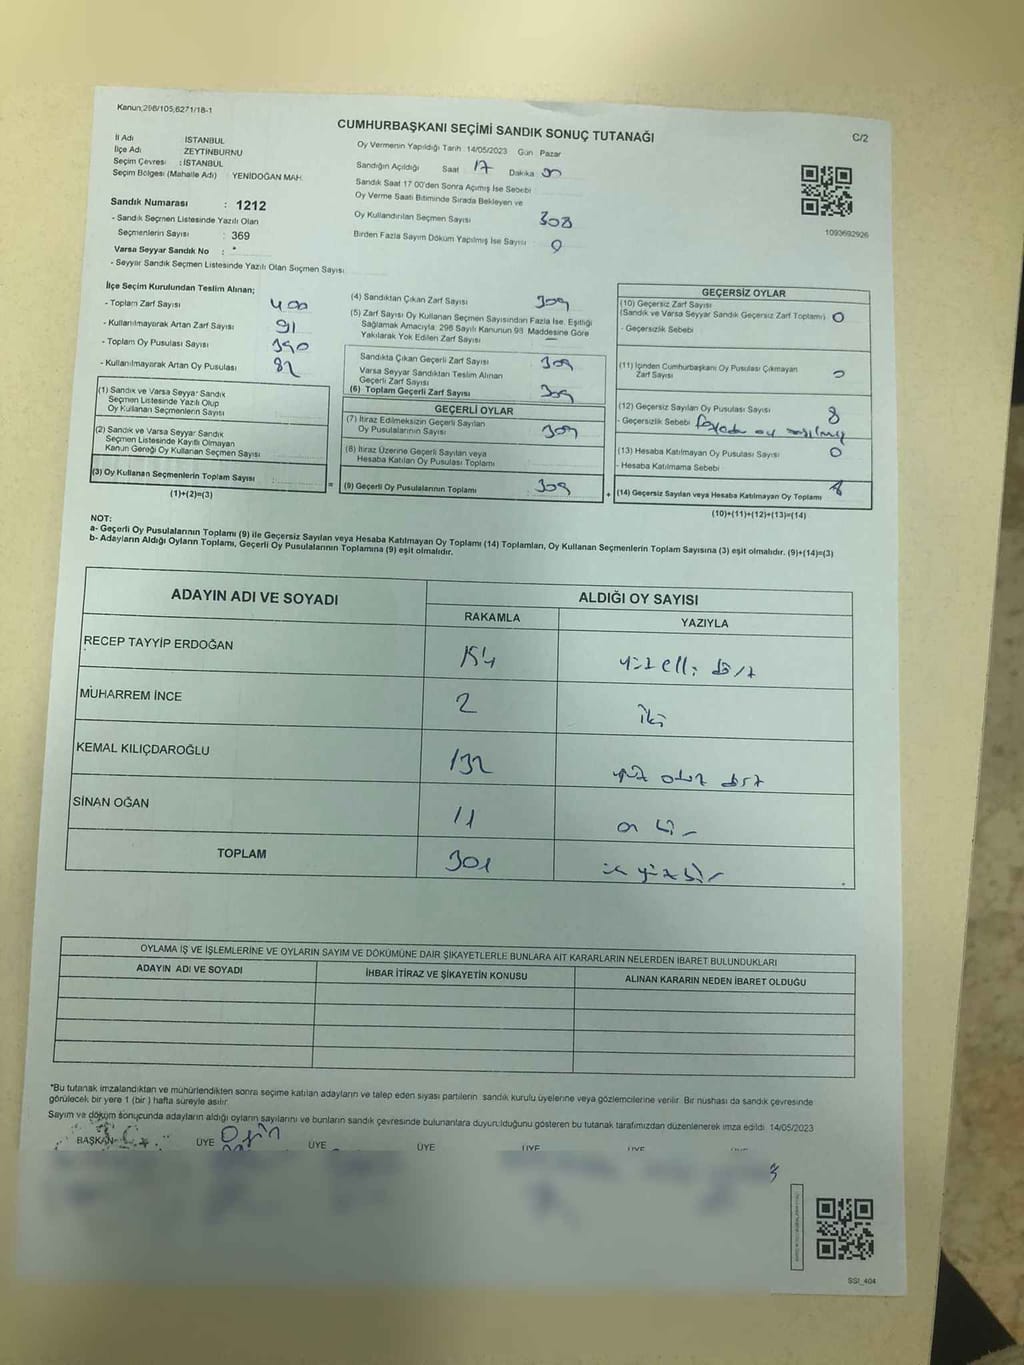 Kanun;298/105,6271/18-1
CUMHURBAŞKANI SEÇİMİ SANDIK SONUÇ TUTANAĞI
C/2
İl Adı İSTANBUL
İlçe Adı ZEYTİNBURNU
Seçim Çevresi : İSTANBUL
Seçim Bölgesi (Mahalle Adı) YENİDOĞAN MAH.
Sandık Numarası : 1212
- Sandık Seçmen Listesinde Yazılı Olan
Seçmenlerin Sayısı : 369
Varsa Seyyar Sandık No : *
- Seyyar Sandık Seçmen Listesinde Yazılı Olan Seçmen Sayısı
Oy Vermenin Yapıldığı Tarih 14/05/2023 Gün Pazar
Sandığın Açıldığı Saat 17 Dakika
Sandık Saat 17.00'den Sonra Açımış İse Sebebi
Oy Verme Saati Bitiminde Sırada Bekleyen ve
Oy Kullandırılan Seçmen Sayısı 308
Birden Fazla Sayım Döküm Yapılmış İse Sayısı 0
1093692926
İlçe Seçim Kurulundan Teslim Alınan;
- Toplam Zarf Sayısı 400
- Kullanılmayarak Artan Zarf Sayısı 91
- Toplam Oy Pusulası Sayısı 390
- Kullanılmayarak Artan Oy Pusulası 82
(1) Sandık ve Varsa Seyyar Sandık
Seçmen Listesinde Yazılı Olup
Oy Kullanan Seçmenlerin Sayısı
(2) Sandık ve Varsa Seyyar Sandık
Seçmen Listesinde Kayıtlı Olmayan
Kanun Gereği Oy Kullanan Seçmen Sayısı
(3) Oy Kullanan Seçmenlerin Toplam Sayısı
(1)+(2)=(3)
(4) Sandıktan Çıkan Zarf Sayısı 309
(5) Zarf Sayısı Oy Kullanan Seçmen Sayısından Fazla İse, Eşitliği
Sağlamak Amacıyla, 298 Sayılı Kanunun 98. Maddesine Göre
Yakılarak Yok Edilen Zarf Sayısı
Sandıkta Çıkan Geçerli Zarf Sayısı 309
Varsa Seyyar Sandıktan Teslim Alınan
Geçerli Zarf Sayısı
(6) Toplam Geçerli Zarf Sayısı 309
GEÇERLİ OYLAR
(7) İtiraz Edilmeksizin Geçerli Sayılan
Oy Pusulalarının Sayısı 309
(8) İtiraz Üzerine Geçerli Sayılan veya
Hesaba Katılan Oy Pusulası Toplamı
=
(9) Geçerli Oy Pusulalarının Toplamı 309
+
GEÇERSİZ OYLAR
(10) Geçersiz Zarf Sayısı
(Sandık ve Varsa Seyyar Sandık Geçersiz Zarf Toplamı) 0
- Geçersizlik Sebebi
(11) İçinden Cumhurbaşkanı Oy Pusulası Çıkmayan
Zarf Sayısı 0
(12) Geçersiz Sayılan Oy Pusulası Sayısı 8
- Geçersizlik Sebebi oy
(13) Hesaba Katılmayan Oy Pusulası Sayısı 0
- Hesaba Katılmama Sebebi
(14) Geçersiz Sayılan veya Hesaba Katılmayan Oy Toplamı 8
(10)+(11)+(12)+(13)=(14)
NOT:
a- Geçerli Oy Pusulalarının Toplamı (9) ile Geçersiz Sayılan veya Hesaba Katılmayan Oy Toplamı (14) Toplamları, Oy Kullanan Seçmenlerin Toplam Sayısına (3) eşit olmalıdır. (9)+(14)=(3)
b- Adayların Aldığı Oyların Toplamı, Geçerli Oy Pusulalarının Toplamına (9) eşit olmalıdır.
ADAYIN ADI VE SOYADI
ALDIĞI OY SAYISI
RAKAMLA
YAZIYLA
RECEP TAYYİP ERDOĞAN 154 yüz elli dört
MUHARREM İNCE 2 iki
KEMAL KILIÇDAROĞLU 132 yüz otuz dört
SİNAN OĞAN 11 on bir
TOPLAM 301 üç yüz bir
OYLAMA İŞ VE İŞLEMLERİNE VE OYLARIN SAYIM VE DÖKÜMÜNE DAİR ŞİKAYETLERLE BUNLARA AİT KARARLARIN NELERDEN İBARET BULUNDUKLARI
ADAYIN ADI VE SOYADI
İHBAR İTİRAZ VE ŞİKAYETİN KONUSU
ALINAN KARARIN NEDEN İBARET OLDUĞU
*Bu tutanak imzalandıktan ve mühürlendikten sonra seçime katılan adayların ve talep eden siyasi partilerin sandık kurulu üyelerine veya gözlemcilerine verilir. Bir nüshası da sandık çevresinde
görülecek bir yere 1 (bir) hafta süreyle asılır.
Sayım ve döküm sonucunda adayların aldığı oyların sayılarını ve bunların sandık çevresinde bulunanlara duyurulduğunu gösteren bu tutanak tarafımızdan düzenlenerek imza edildi. 14/05/2023
BAŞKAN ÜYE ÜYE ÜYE ÜYE ÜYE
SSI_404